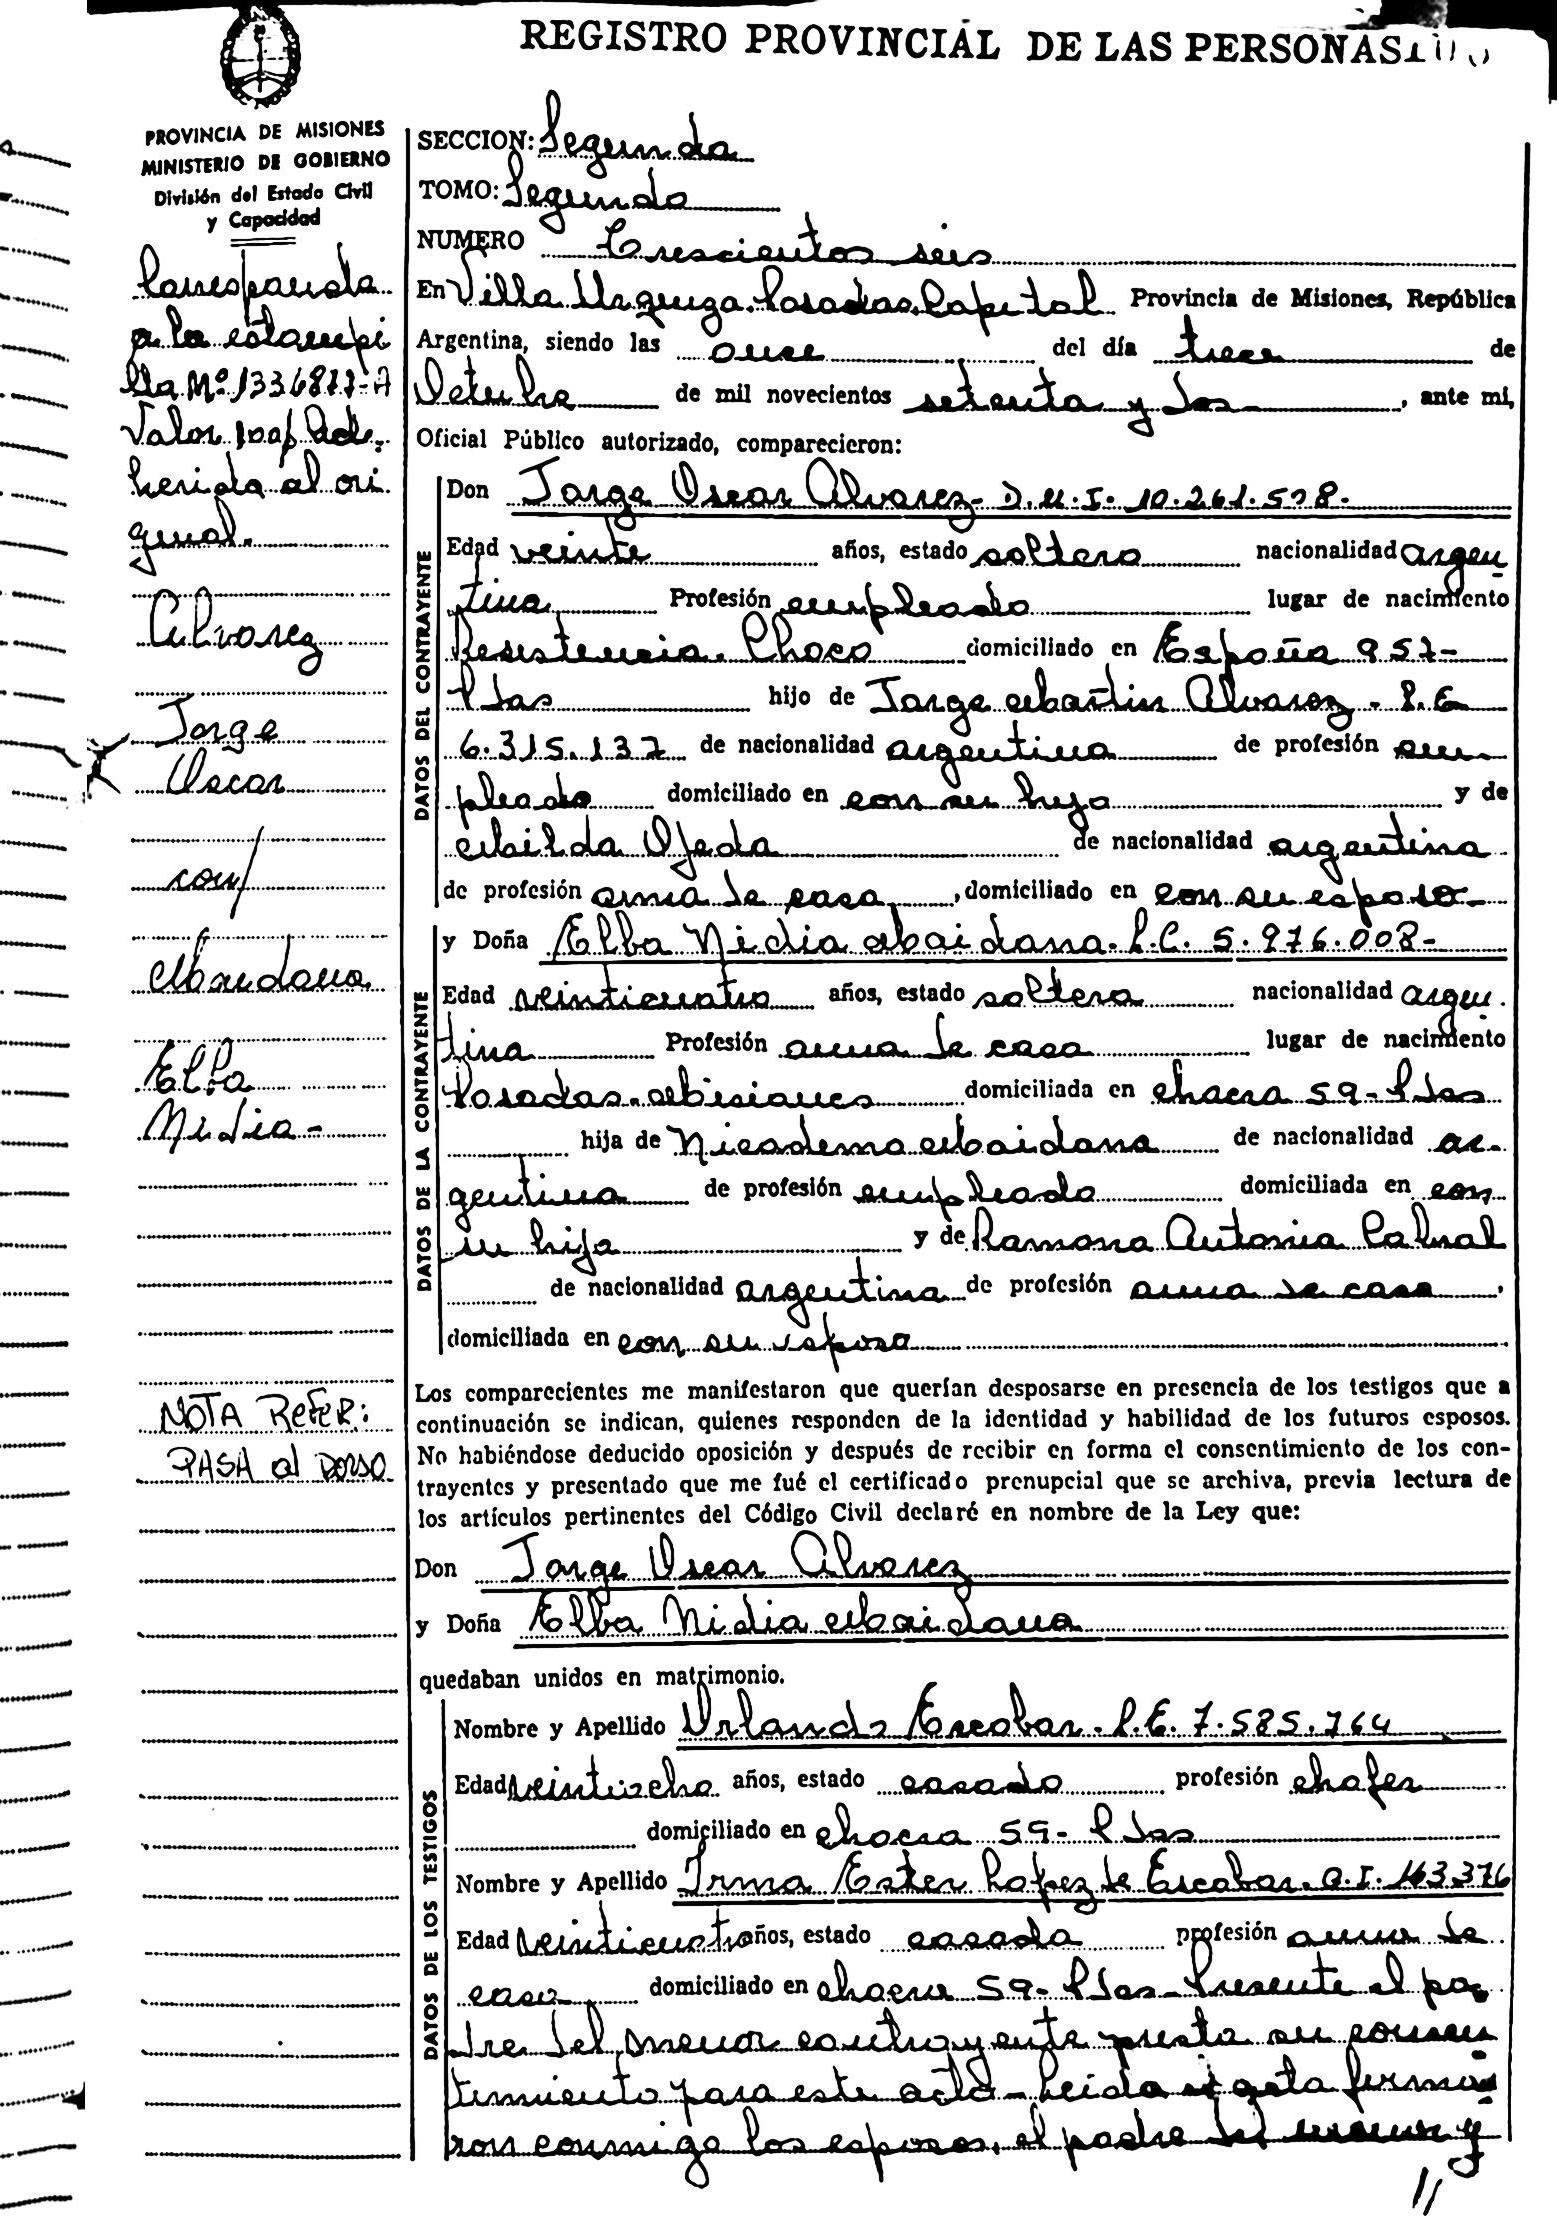 REGISTRO PROVINCIAL DE LAS PERSONAS
PROVINCIA DE MISIONES
MINISTERIO DE GOBIERNO
División del Estado Civil
y Capacidad
Corresponde
a la estampi
lla Nº 1336877-A
Valor 100p/ Ad-
herida al ori
ginal.
Alvarez
Jorge
Oscar
con/
Maidana
Elba
Nidia-
NOTA REFER:
PASA al DORSO
SECCION: Segunda
TOMO: Segundo
NUMERO Trescientos seis
En Villa Urquiza. Posadas. Capital Provincia de Misiones, República
Argentina, siendo las once del día trece de
Octubre de mil novecientos setenta y dos , ante mi,
Oficial Público autorizado, comparecieron:
DATOS DEL CONTRAYENTE
Don Jorge Oscar Alvarez- D.N.I. 10.261.578.
Edad veinte años, estado soltero nacionalidad argen
tina Profesión empleado lugar de nacimiento
Resistencia. Chaco domiciliado en España 957-
Pdas hijo de Jorge Martin Alvarez - L.E
6.315.137 de nacionalidad argentina de profesión em-
pleado domiciliado en con su hijo y de
Matilda Ojeda de nacionalidad argentina
de profesión ama de casa , domiciliado en con su esposo-
DATOS DE LA CONTRAYENTE
y Doña Elba Nidia Maidana. L.C. 5.976.008-
Edad veinticuatro años, estado soltera nacionalidad argen.
tina Profesión ama de casa lugar de nacimiento
Posadas. Misiones domiciliada en chacra 59- Pdas
hija de Nicodemo Maidana de nacionalidad ar-
gentina de profesión empleado domiciliada en con
su hija y de Ramona Antonia Cabral
de nacionalidad argentina de profesión ama de casa ,
domiciliada en con su esposo
Los comparecientes me manifestaron que querían desposarse en presencia de los testigos que a
continuación se indican, quienes responden de la identidad y habilidad de los futuros esposos.
No habiéndose deducido oposición y después de recibir en forma el consentimiento de los con-
trayentes y presentado que me fué el certificado prenupcial que se archiva, previa lectura de
los artículos pertinentes del Código Civil declaré en nombre de la Ley que:
Don Jorge Oscar Alvarez
y Doña Elba Nidia Maidana
quedaban unidos en matrimonio.
DATOS DE LOS TESTIGOS
Nombre y Apellido Orlando Escobar. L.E. 7.585.764
Edad veintiocho años, estado casado profesión chofer
domiciliado en chacra 59- Pdas
Nombre y Apellido Irma Ester Lopez de Escobar. C.I. 163.376
Edad veinticuatro años, estado casada profesión ama de
casa domiciliado en chacra 59- Pdas- Presente el pa-
dre del menor contrayente presta su consen
timiento para este acto- Leida el acta firma-
ron conmigo los esposos, el padre del menor y
//